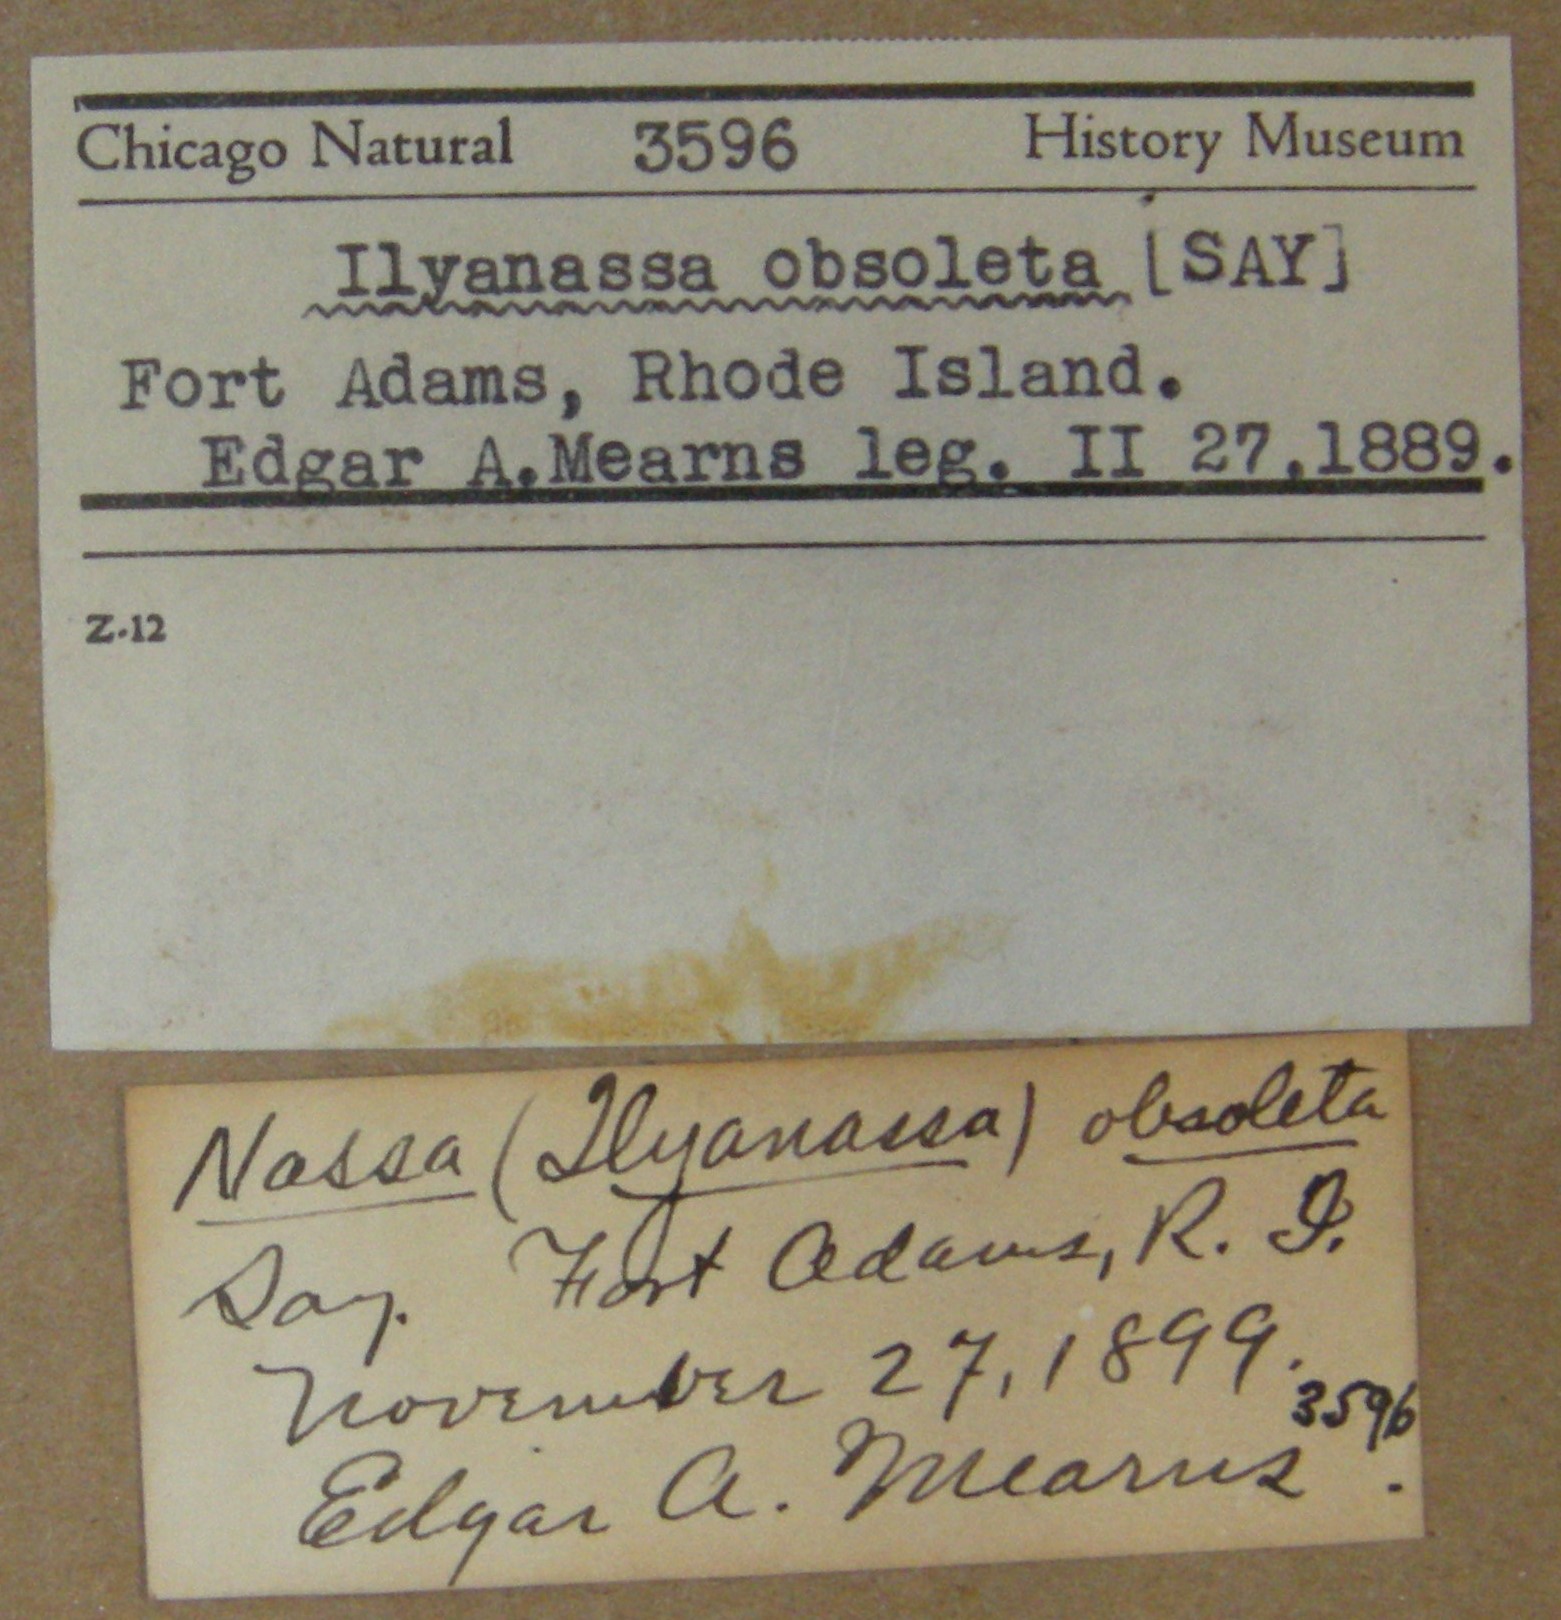 Chicago Natural 3596 History Museum
Ilyanassa obsoleta [SAY]
Fort Adams, Rhode Island.
Edgar A.Mearns leg. II 27,1889.
Z-12
Nassa (Ilyanassa) obsoleta
Say. Fort Adams, R. I.
November 27, 1899.
3596
Edgar A. Mearns.